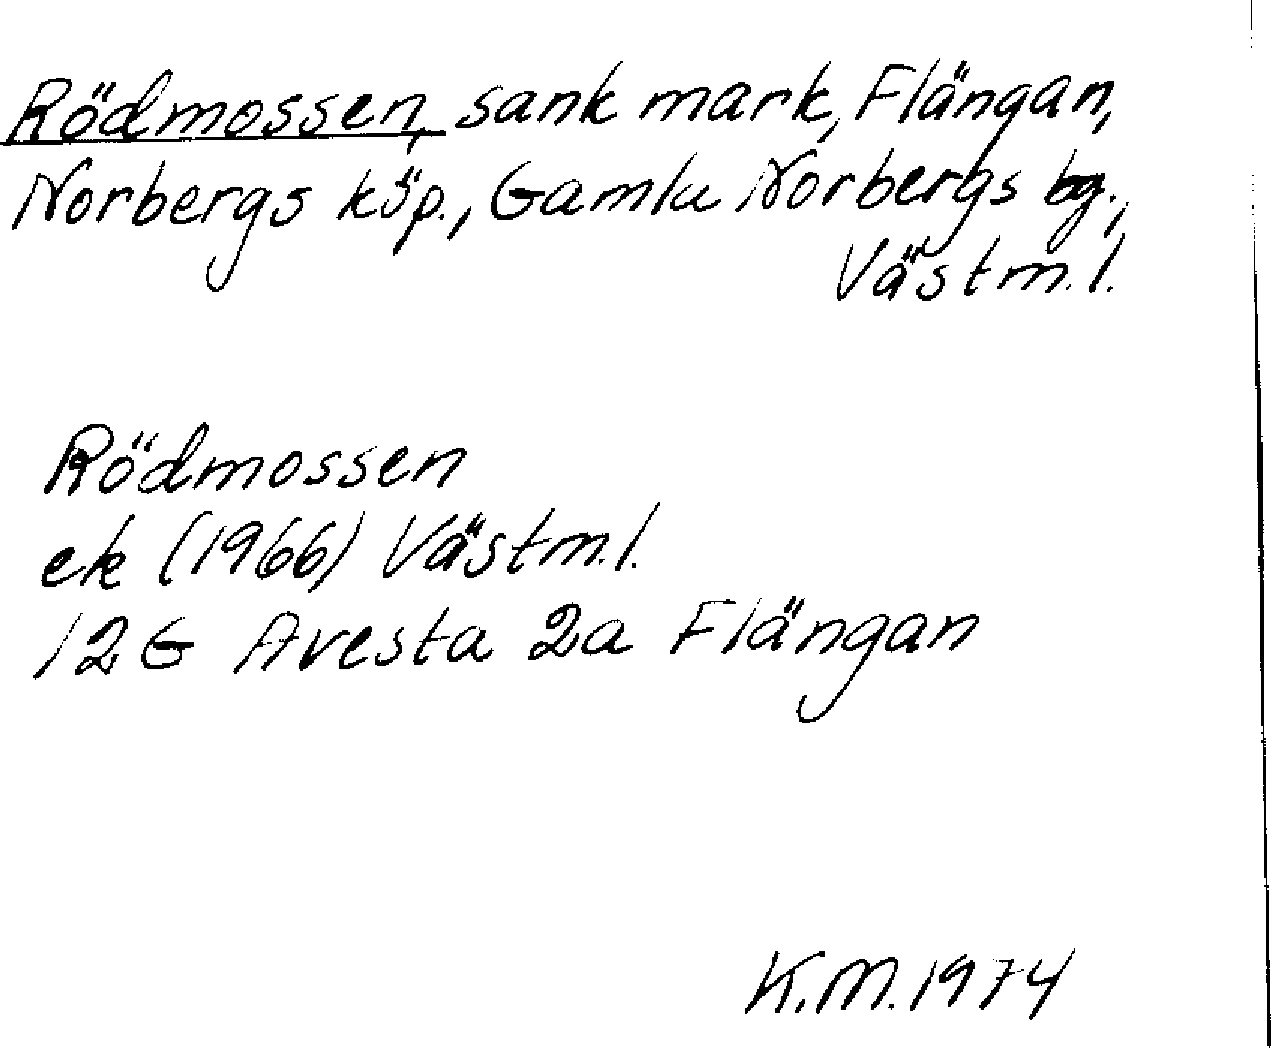 Rödmossen, sank mark, Flängan,
Norbergs köp., Gamla Norbergs bg.,
Västm.l.
Rödmossen
ek (1966) Västm.l.
12G Avesta 2a Flängan
K.M. 1974